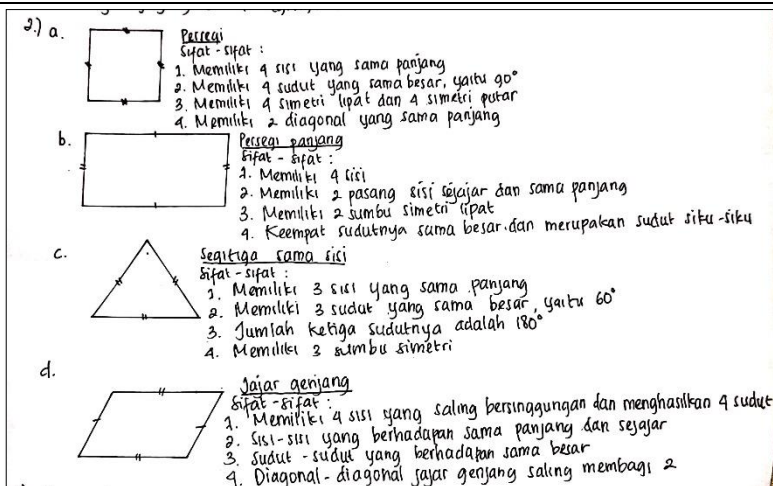 2.) a.
Persegi
Sifat - sifat :
1. Memiliki 4 sisi yang sama panjang
2. Memiliki 4 sudut yang sama besar, yaitu 90°
3. Memiliki 4 simetri lipat dan 4 simetri putar
4. Memiliki 2 diagonal yang sama panjang
b.
Persegi panjang
Sifat - sifat :
1. Memiliki 4 sisi
2. Memiliki 2 pasang sisi sejajar dan sama panjang
3. Memiliki 2 sumbu simetri lipat
4. Keempat sudutnya sama besar dan merupakan sudut siku-siku
c.
Segitiga sama sisi
Sifat - sifat :
1. Memiliki 3 sisi yang sama panjang
2. Memiliki 3 sudut yang sama besar, yaitu 60°
3. Jumlah ketiga sudutnya adalah 180°
4. Memiliki 3 sumbu simetri
d.
Jajar genjang
Sifat - sifat :
1. Memiliki 4 sisi yang saling bersinggungan dan menghasilkan 4 sudut
2. Sisi-sisi yang berhadapan sama panjang dan sejajar
3. Sudut - sudut yang berhadapan sama besar
4. Diagonal - diagonal jajar genjang saling membagi 2